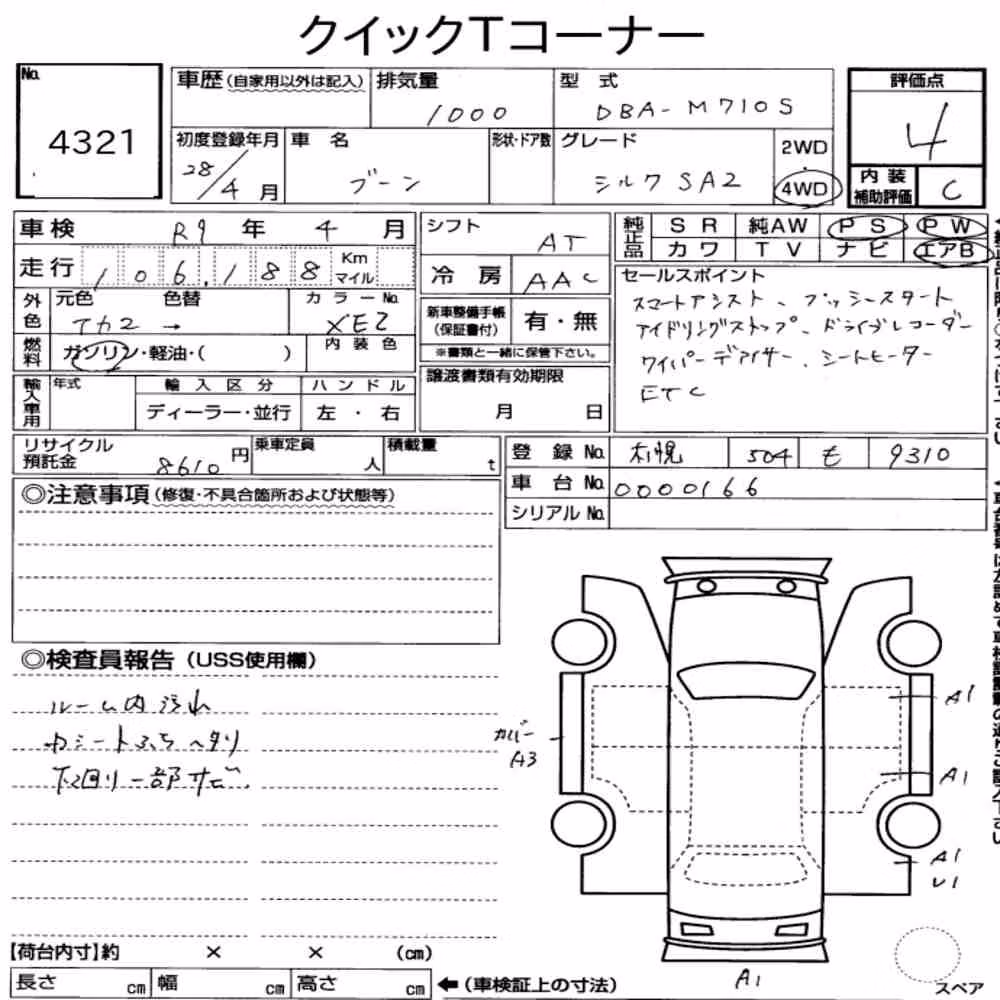 クイックTコーナー
No. 4321
車歴 (自家用以外は記入) 排気量 1000 型式 DBA-M710S
初度登録年月 28/4月 車名 ブーン 形状・ドア数 グレード シルク SA2 2WD・4WD
評価点 4
内装補助評価 C
車検 R9年 4月
走行 106,188 Km マイル
外色 元色 色替 カラーNo. XE2
燃料 ガソリン・軽油・( ) 内装色
輸入車用 年式 輸入区分 ハンドル
ディーラー・並行 左・右
シフト AT
冷房 AAC
新車整備手帳(保証書付) 有・無
※書類と一緒に保管下さい。
譲渡書類有効期限
月 日
純正品 SR 純AW PS PW
カワ TV ナビ エアB
セールスポイント
スマートアシスト、プッシュスタート
アイドリングストップ、ドライブレコーダー
ワイパーデアイサー、シートヒーター
ETC
リサイクル預託金 8610円 乗車定員 人 積載量 t
登録No. 札幌 504 も 9310
車台No. 0000166
シリアルNo.
◎注意事項 (修復・不具合箇所および状態等)
◎検査員報告 (USS使用欄)
ルーム内汚れ
シートふち ヘタリ
下回り一部サビ
カバー
A3
A1
A1
A1
U1
A1
【荷台内寸】約 × × (cm)
長さ cm 幅 cm 高さ cm ←(車検証上の寸法)
スペア